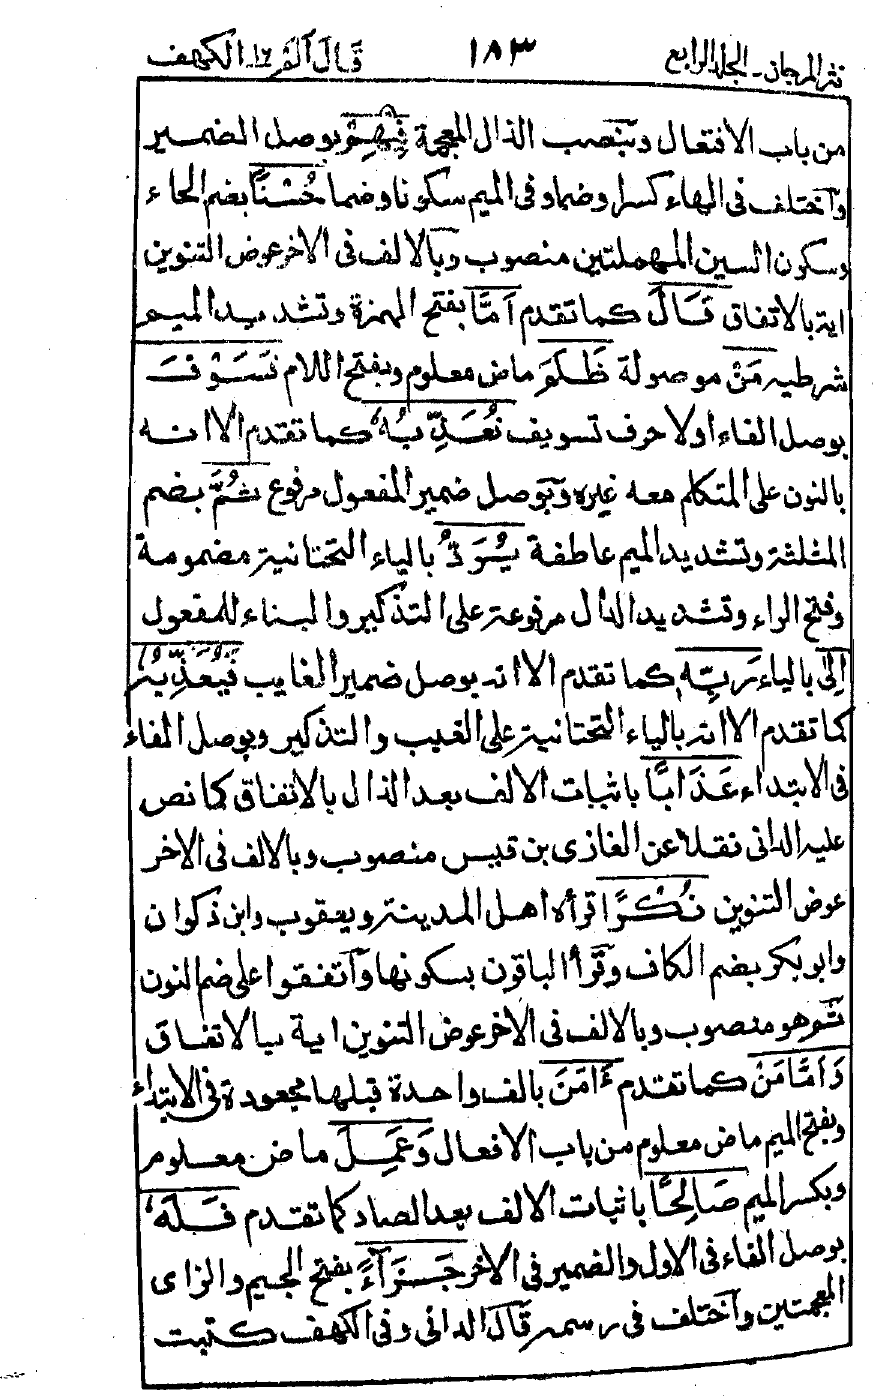 نثر المرجان ـ الجلد الرابع ١٨٣ قَالَ اَلَمْ ١٦ ـ الكهف
من باب الافتعال وبنصب الذال المعجمة فِيْهِمْ بوصل الضمير
واختلف فى الهاء كسرا وضما وفى الميم سكونا وضما حُسْنًا بضم الحاء
وسكون السين المهملتين منصوب وبالالف فى الاخر عوض التنوين
اية بالاتفاق قَالَ كما تقدم اَمَّا بفتح الهمزة وتشديد الميم
شرطية مَنْ موصولة ظَلَمَ ماض معلوم وبفتح اللام فَسَوْفَ
بوصل الفاء اولا حرف تسويف نُعَذِّبُهٗ كما تقدم الا انه
بالنون على المتكلم معه غيره وبوصل ضمير المفعول مرفوع ثُمَّ بضم
المثلثة وتشديد الميم عاطفة يُرَدُّ بالياء التحتانية مضمومة
وفتح الراء وتشديد الدال مرفوعة على التذكير والبناء للمفعول
اِلٰى بالياء رَبِّهٖ كما تقدم الا انه بوصل ضمير الغايب فَيُعَذِّبُهٗ
كما تقدم الا انه بالياء التحتانية على الغيب والتذكير وبوصل الفاء
فى الابتداء عَذَابًا باثبات الالف بعد الذال بالاتفاق كما نص
عليه الدانى نقلا عن الغازى بن قيس منصوب وبالالف فى الاخر
عوض التنوين نُكْرًا قرأه اهل المدينة ويعقوب وابن ذكوان
وابو بكر بضم الكاف وقرأ الباقون بسكونها واتفقوا على ضم النون
ثم هو منصوب وبالالف فى الاخر عوض التنوين اية بالاتفاق
وَاَمَّا مَنْ كما تقدم اٰمَنَ بالف واحدة قبلها مجعودة فى الابتداء
وبفتح الميم ماض معلوم من باب الافعال وَعَمِلَ ماض معلوم
وبكسر الميم صَالِحًا باثبات الالف بعد الصاد كما تقدم فَلَهٗ
بوصل الفاء فى الاول والضمير فى الاخر جَزَآءً بفتح الجيم والزاى
المعجمتين واختلف فى رسمه قال الدانى وفى الكهف كتبت